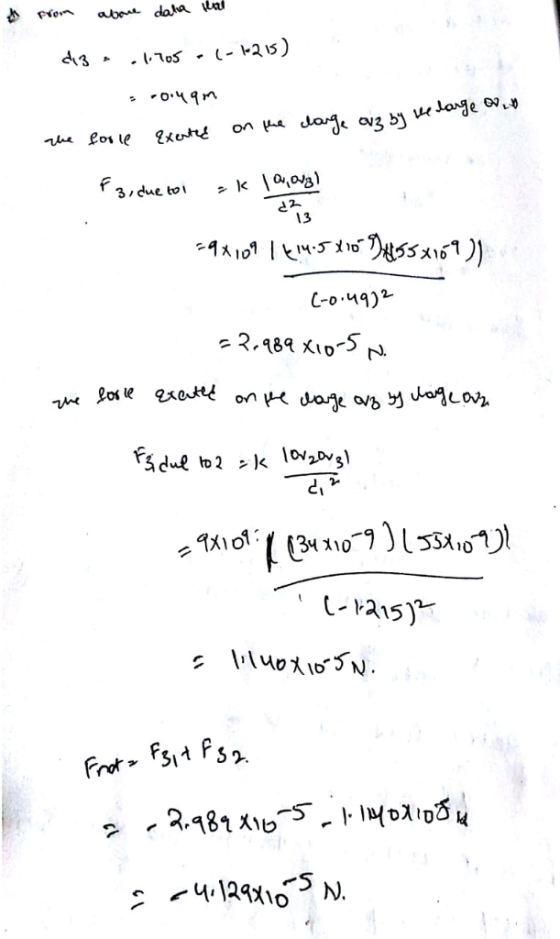 From above data that
d13 = -1.705 - (-1.215)
= -0.49m
The force Exerted on the charge q3 by the charge q1
F3, due to1 = k |q1q3|
d²13
= 9x10⁹ |(-14.5x10⁻⁹)(55x10⁻⁹)|
(-0.49)²
= 2.989 x10-5 N.
The force exerted on the charge q3 by charge q2
F3, due to2 = k |q2q3|
d1²
= 9x10⁹ |(34x10-9)(55x10-9)|
(-1.215)²
= 1.140x10-5N.
Fnet = F31 + F32.
= -2.989x10-5 - 1.140x10-5 N
= -4.129x10-5 N.